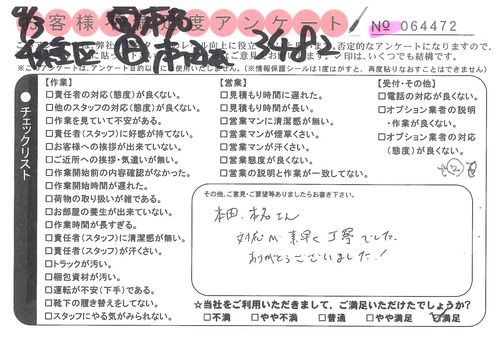 お客様満足度アンケート
№ 064472
34882
※このアンケートは、アンケート目的以外に使用いたしません。(※情報保護シールは1度はがすと、再度貼りなおすことはできません)
●チェックリスト
【作業】
□責任者の対応(態度)が良くない。
□他のスタッフの対応(態度)が良くない。
□作業を見ていて不安がある。
□責任者(スタッフ)に好感が持てない。
□お客様への挨拶が出来ていない。
□ご近所への挨拶・気遣いが無い。
□作業開始前の内容確認がなかった。
□作業開始時間が遅れた。
□荷物の取り扱いが雑である。
□お部屋の養生が出来ていない。
□作業時間が長すぎる。
□責任者(スタッフ)に清潔感が無い。
□責任者(スタッフ)が汗くさい。
□トラックが汚い。
□梱包資材が汚い。
□運転が不安(下手)である。
□靴下の履き替えをしてない。
□スタッフにやる気がみられない。
【営業】
□見積もり時間に遅れた。
□見積もり時間が長い。
□営業マンに清潔感が無い。
□営業マンが煙草くさい。
□営業マンが汗くさい。
□営業態度が良くない。
□営業の説明と作業が一致してない。
【受付・その他】
□電話の対応が良くない。
□オプション業者の説明
・作業が良くない。
□オプション業者の対応
(態度)が良くない。
その他、ご意見・ご要望等ありましたらお書き下さい。
本田、本名さん
対応が素早く丁寧でした。
ありがとうございました!
☆当社をご利用いただきまして、ご満足いただけたでしょうか?
□不満 □やや不満 □普通 □やや満足 ☑満足